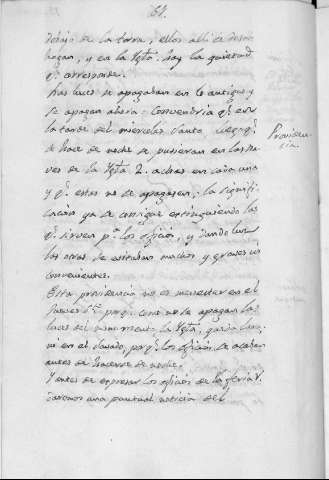 64.
debajo de la torre; ellos alli se desa
hogan, y en la Ygta. hay la quietud
q. corresponde.
Las luces se apagaban en lo antiguo y
se apagan ahora: convendria q. en
la tarde del miercoles santo luego q.
se hace de noche se pusieran en las na
ves de la Ygta. 2. achas en cada una
y q. estas no se apagasen; la signifi
cacion ya se consigue extinguiendo las
q. sirven pa. los oficios, y dando luz
las otras se evitaban muchos y graves in
convenientes.
Esta providencia no es menester en el
Jueves Sto. porq. como no se apagan las
luces del monumento la Ygta. queda
ni en el porq. los oficios se acaban
antes de hacerse de noche.
Y antes de expresar los oficios de la feria V.
daremos una puntual noticia del
Providen
cia.